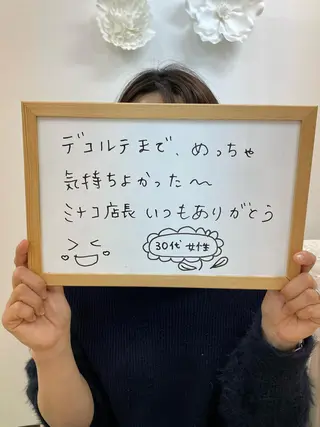 デコルテまで、めっちゃ
気持ちよかった〜
ミナコ店長いつもありがとう
30代 女性